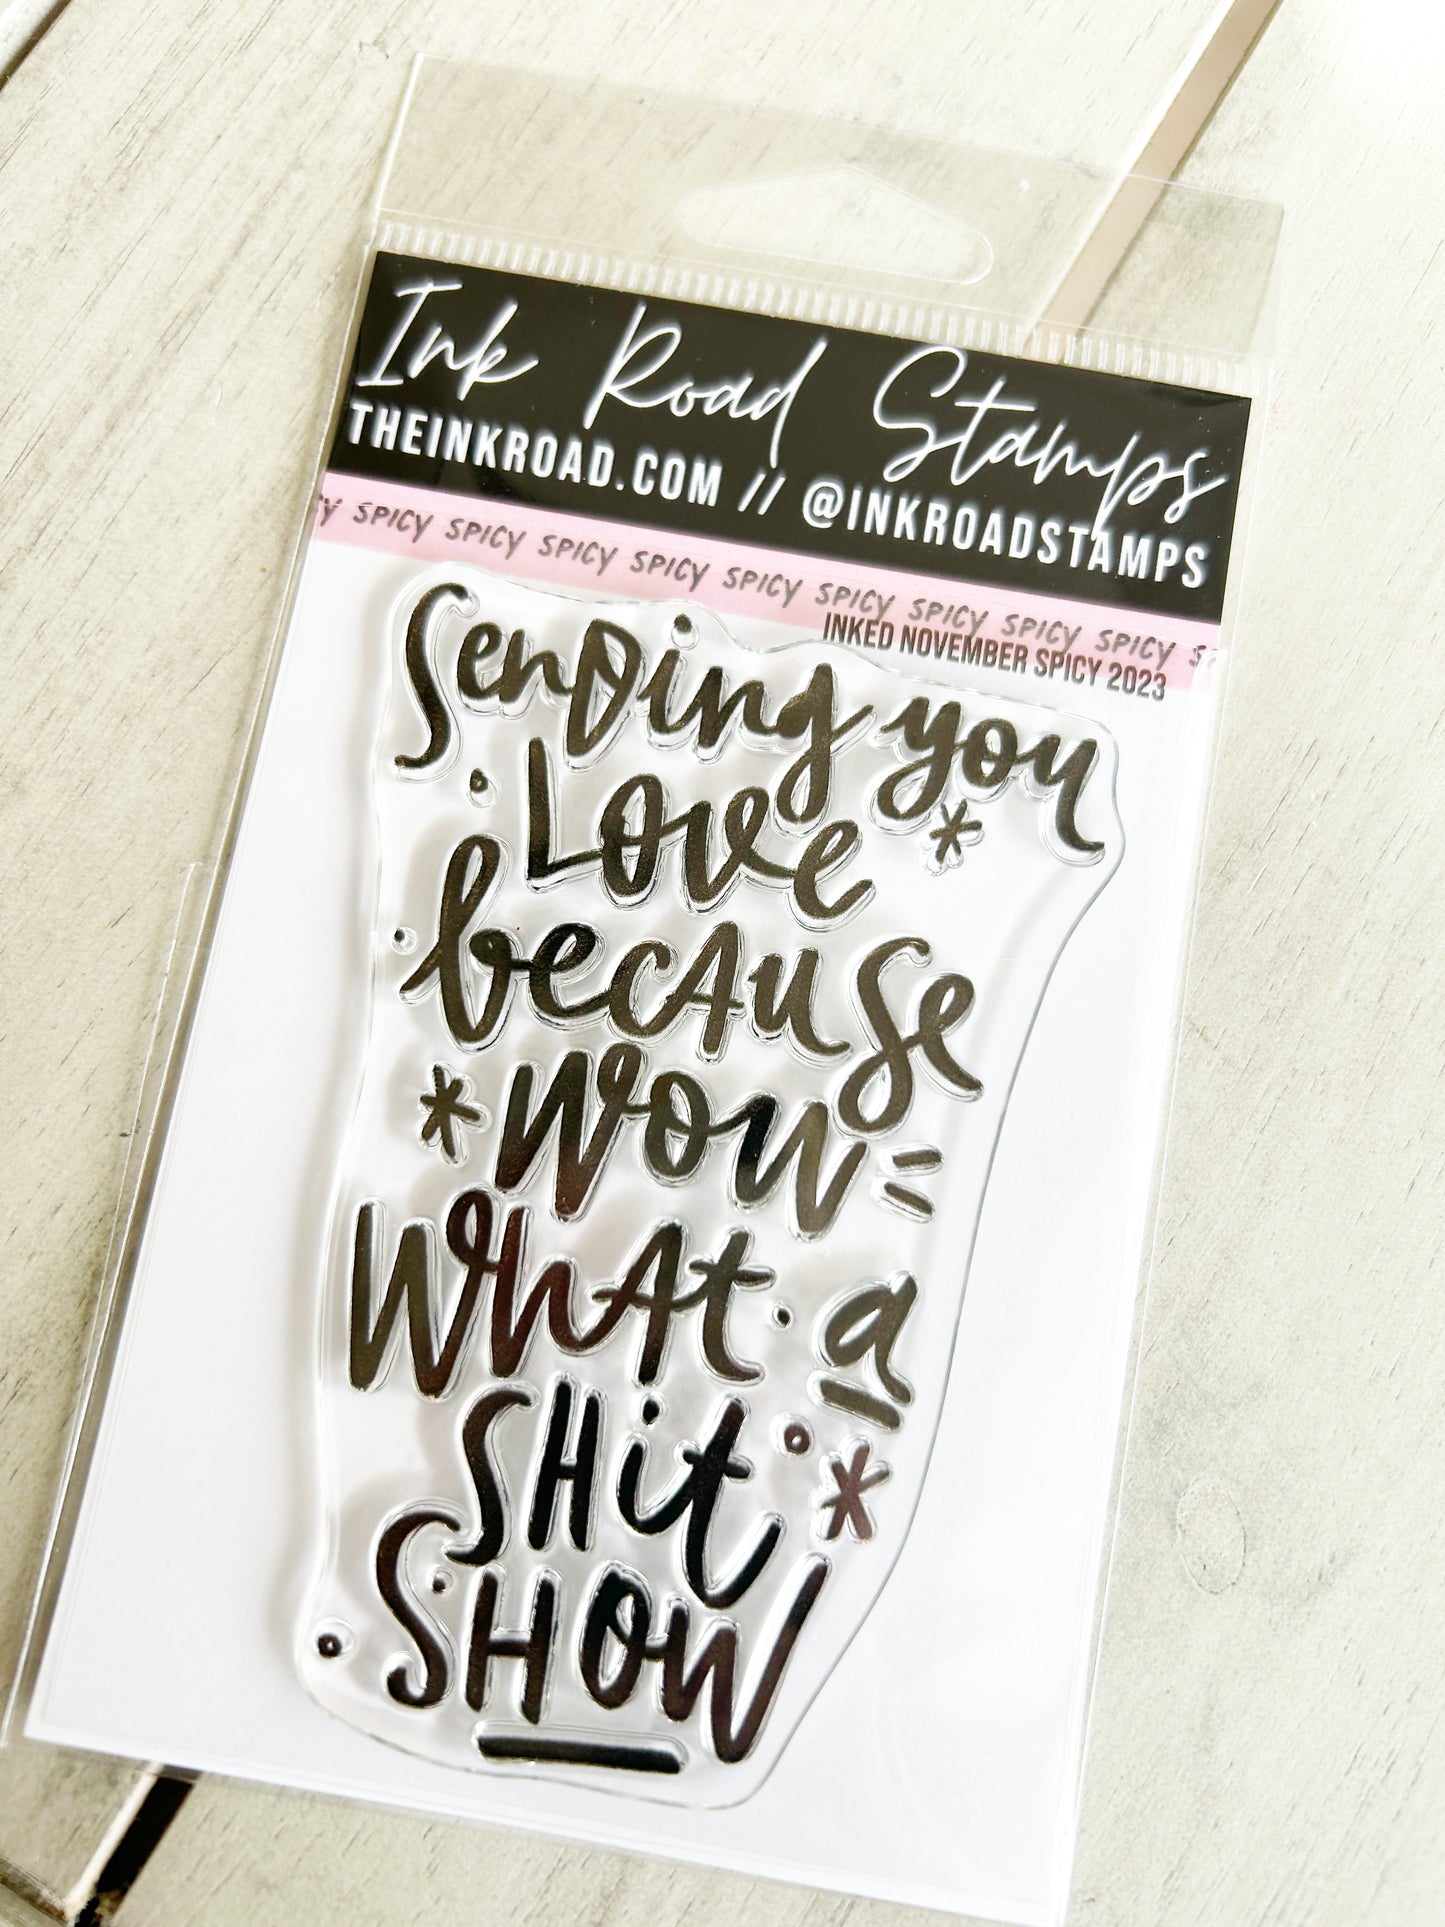 Ink Road Stamps
THEINKROAD.COM // @INKROADSTAMPS
SPICY SPICY SPICY SPICY SPICY SPICY SPICY SPICY SPICY
INKED NOVEMBER SPICY 2023
Sending you
Love
because
wow
what a
shit
show